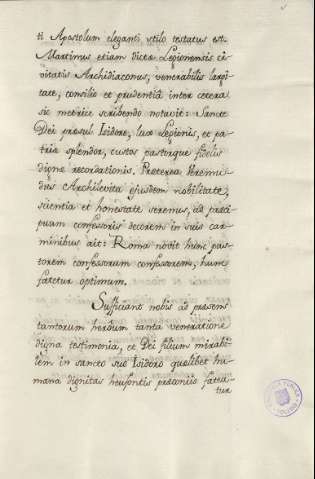 ti Apostolum eleganti stilo testatus est.
Martinus etiam dictæ Legionensis ci-
vitatis Archidiaconus, venerabilis largi-
tate, consilio et prudentiâ inter cetera
sic metrice scribendo notavit: Sancte
Dei præsul Isidore, lux Legionis, et pa-
triæ splendor, custos pastorque fidelis
digne recordationis. Præterea Veremu-
dus Archilevita ejusdem nobilitate,
scientia et honestate serenus, ad præci-
puam confessoris decorem in suis car-
minibus ait: Roma novit hunc pas-
torem confessorum confessorem, hunc
fatetur optimum.
Sufficiant nobis ad præsens
tantorum heroum tanta veneratione
digna testimonia, et Dei filium mirabi-
lem in sancto suo Isidoro quælibet hu-
mana dignitas præconiis fatea-
tur